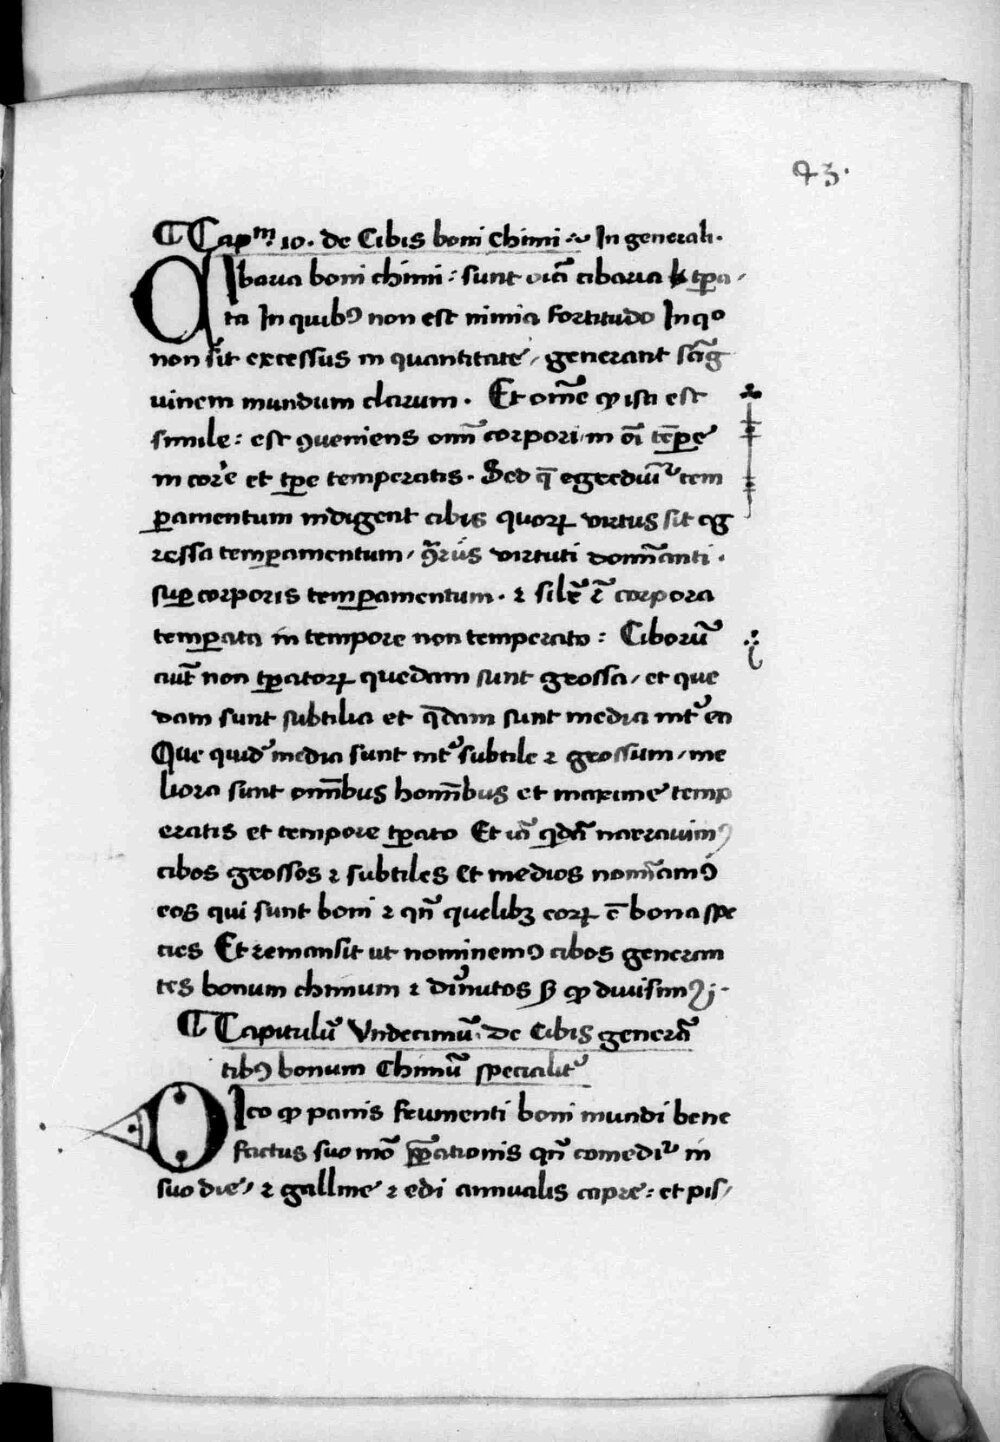 43.
¶ Capm. 10. de Cibis boni chimi :~ In generali.
CIbaria boni chimi : sunt oīa cibaria tꝑa-
ta In quibꝰ non est nimia fortitudo In qo
non sit excessus in quantitate / generant sāg
uinem mundum clarum . Et om̄e ꝙ isti est
simile : est ꝯueniens om̄i corpori in oī tēꝑe
in cor̄e et tꝑe temperatis . Sed q̄ egrediūt᷑ tem
ꝑamentum indigent cibis quoꝝ virtus sit eg
ressa temꝑamentum / ꝯ̄rius virtuti domīanti .
suꝑ corporis temꝑamentum . ⁊ sil̄r corpora
temꝑata in tempore non temperato : Ciborū
aūt non tꝑatoꝝ quedam sunt grossa / et que
dam sunt subtilia et q̄dam sunt media int᷑ ea
Que quid᷑ media sunt int᷑ subtile ⁊ grossum / me
liora sunt om̄ibus homībus et maxime temp
eratis et tempore tꝑato Et iā narrauimꝰ
cibos grossos ⁊ subtiles Et medios nomīamꝰ
eos qui sunt boni ⁊ qn̄ quelibꝫ eoꝝ ē bona spe
cies Et remansit ut nominemꝰ cibos generan
tes bonum chimum ⁊ ꝙ diuisimꝰ
¶ Capitulū Undecimū . De Cibis generā
tibꝰ bonum Chimū specialit᷑
DIco ꝙ panis frumenti boni mundi bene
factus suo mō p̄ꝑationis qn̄ comedit᷑ in
suo die / ⁊ galline ⁊ edi annualis capre : et pis/